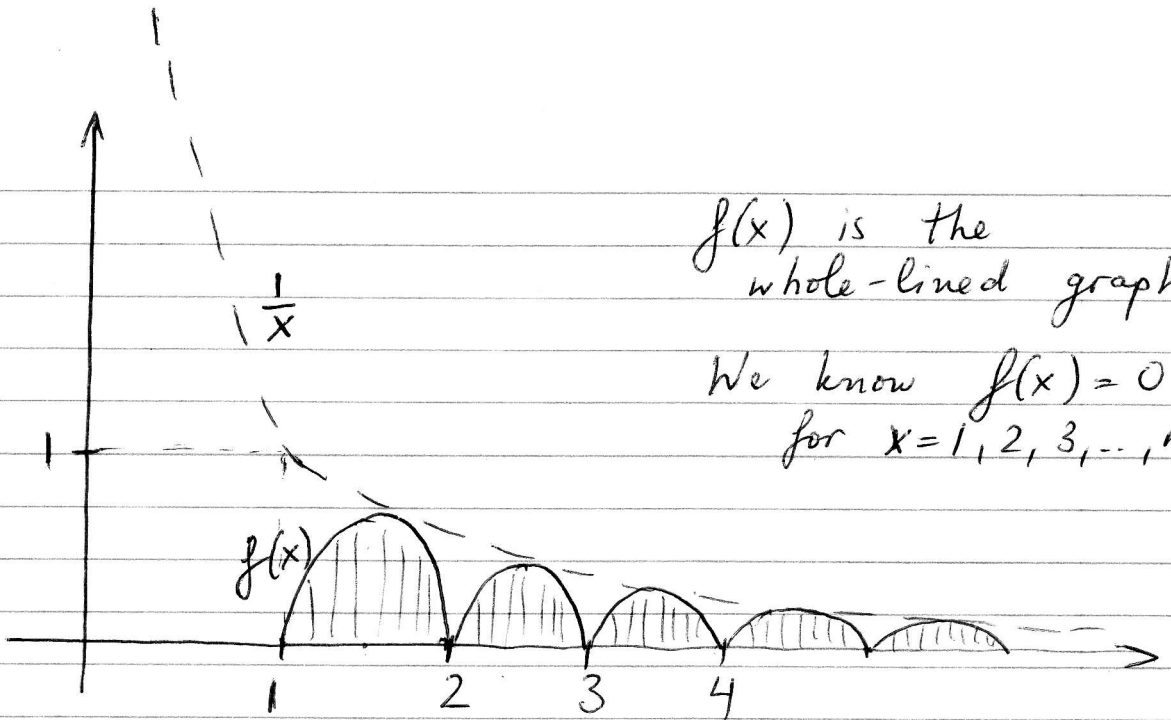 f(x) is the
whole-lined graph
1/x
We know f(x) = 0
for x = 1, 2, 3, ..,
1
f(x)
1 2 3 4